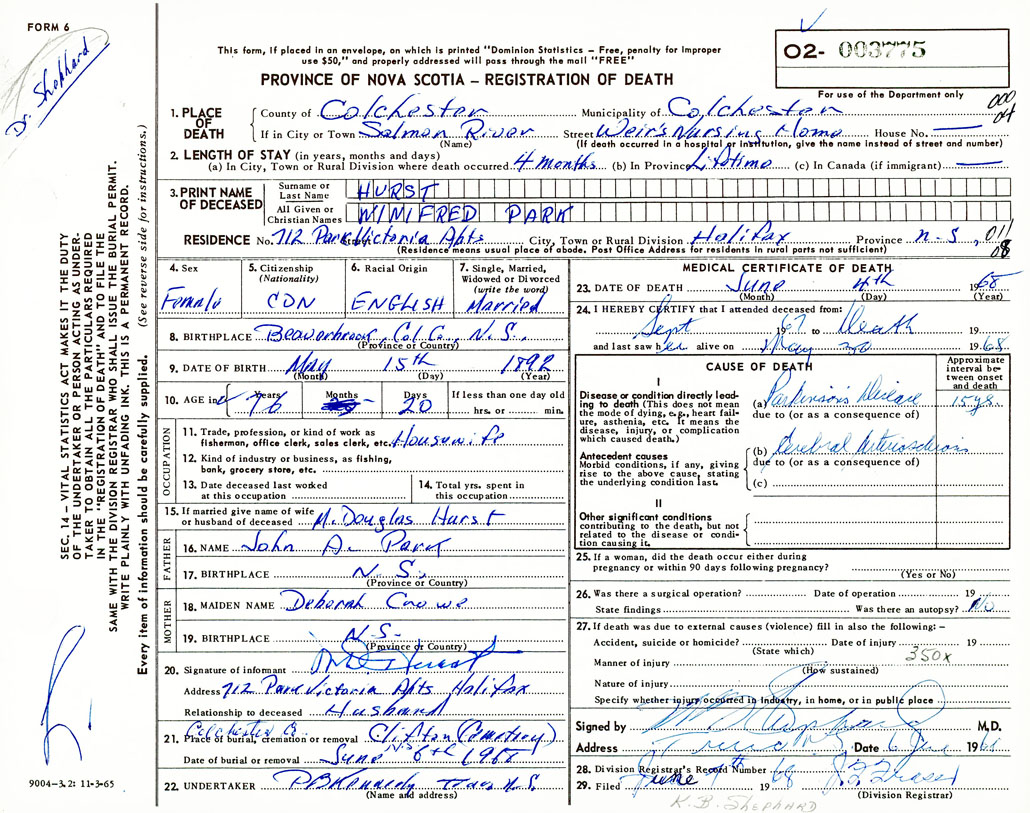 FORM 6
Dr. Shephard
This form, if placed in an envelope, on which is printed "Dominion Statistics – Free, penalty for improper
use $50," and properly addressed will pass through the mail "FREE"
PROVINCE OF NOVA SCOTIA – REGISTRATION OF DEATH
02- 003775
For use of the Department only
000
04
1. PLACE OF DEATH
County of Colchester Municipality of Colchester
If in City or Town Salmon River Street Weir's Nursing Home House No. —
(Name) (If death occurred in a hospital or institution, give the name instead of street and number)
2. LENGTH OF STAY (in years, months and days)
(a) In City, Town or Rural Division where death occurred 4 months (b) In Province Lifetime (c) In Canada (if immigrant) —
3. PRINT NAME OF DECEASED
Surname or Last Name HURST
All Given or Christian Names WINIFRED PARK
RESIDENCE No. 712 Park Victoria Apts City, Town or Rural Division Halifax Province N.S.
011
08
(Residence means usual place of abode. Post Office Address for residents in rural parts not sufficient)
4. Sex Female
5. Citizenship (Nationality) CDN
6. Racial Origin ENGLISH
7. Single, Married, Widowed or Divorced (write the word) Married
8. BIRTHPLACE Beaverbrook, Col. Co., N.S.,
(Province or Country)
9. DATE OF BIRTH May 15th 1892
(Month) (Day) (Year)
10. AGE in Years 76 Months Days 20 If less than one day old
hrs. or min.
OCCUPATION
11. Trade, profession, or kind of work as
fisherman, office clerk, sales clerk, etc. Housewife
12. Kind of industry or business, as fishing,
bank, grocery store, etc.
13. Date deceased last worked
at this occupation
14. Total yrs. spent in
this occupation
15. If married give name of wife
or husband of deceased M. Douglas Hurst
FATHER
16. NAME John A. Park
17. BIRTHPLACE N.S.
(Province or Country)
MOTHER
18. MAIDEN NAME Deborah Crowe
19. BIRTHPLACE N.S.
(Province or Country)
20. Signature of informant M D Hurst
Address 712 Park Victoria Apts Halifax
Relationship to deceased Husband
Colchester Co
21. Place of burial, cremation or removal Clifton (Cemetery)
N.S.
Date of burial or removal June 6th 1968
22. UNDERTAKER P B Kennedy Truro N.S.
(Name and address)
MEDICAL CERTIFICATE OF DEATH
23. DATE OF DEATH June 4th 1968
(Month) (Day) (Year)
24. I HEREBY CERTIFY that I attended deceased from:
Sept 1967 to Death 19
and last saw her alive on May 30 1968
CAUSE OF DEATH
Approximate interval between onset and death
I
Disease or condition directly leading
to death (This does not mean
the mode of dying, e.g., heart failure,
asthenia, etc. It means the
disease, injury, or complication
which caused death.)
(a) Parkinson's Disease 15 yrs.
due to (or as a consequence of)
Antecedent causes
Morbid conditions, if any, giving
rise to the above cause, stating
the underlying condition last.
(b) Cerebral Arteriosclerosis
due to (or as a consequence of)
(c)
II
Other significant conditions
contributing to the death, but not
related to the disease or condition
causing it.
25. If a woman, did the death occur either during
pregnancy or within 90 days following pregnancy?
(Yes or No)
26. Was there a surgical operation? Date of operation 19
State findings Was there an autopsy? No
27. If death was due to external causes (violence) fill in also the following: –
Accident, suicide or homicide? Date of injury 19
(State which) 350X
Manner of injury
(How sustained)
Nature of injury
Specify whether injury occurred in Industry, in home, or in public place
Signed by M.D.
Address Truro N.S. Date 6 June 1968
28. Division Registrar's Record Number
29. Filed June 7th 1968
(Division Registrar)
K. B. SHEPHARD
SEC. 14 – VITAL STATISTICS ACT MAKES IT THE DUTY
OF THE UNDERTAKER OR PERSON ACTING AS UNDER-
TAKER TO OBTAIN ALL THE PARTICULARS REQUIRED
IN THE "REGISTRATION OF DEATH" AND TO FILE THE
SAME WITH THE DIVISION REGISTRAR WHO SHALL ISSUE THE BURIAL PERMIT.
WRITE PLAINLY WITH UNFADING INK. THIS IS A PERMANENT RECORD.
Every item of information should be carefully supplied. (See reverse side for instructions.)
9004-3.2: 11-3-65